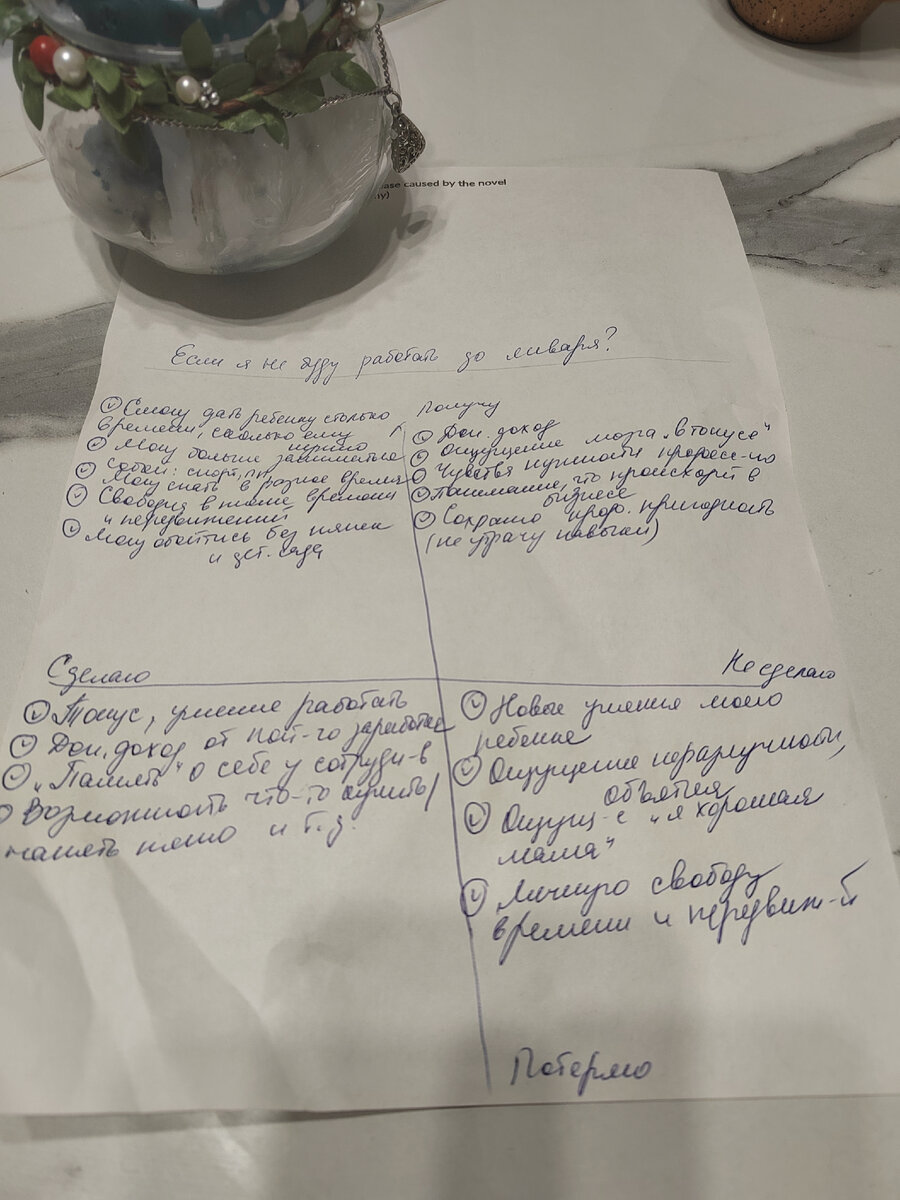 ase caused by the novel
y)
Если я не буду работать до января?
Получу
Смогу дать ребенку столько
времени, сколько ему нужно
Могу больше заниматься
собой: спорт, пп
Могу спать в разное время
Свобода в плане времени
и передвижений
Могу обойтись без нянек
и дет. сада
Доп. доход
Ощущение мозга "в тонусе"
Чувства нужности професс-но
Понимание, что происходит в
бизнесе
Сохраню проф. пригодность
(не утрачу навыки)
Сделаю
Не сделаю
Тонус, умение работать
Доп. доход от пост-го заработка
"Память" о себе у сотрудн-в
Возможность что-то купить/
нанять няню и т.д.
Новые умения моего
ребенка
Ощущение неразлучности,
объятия
Ощущ-е "я хорошая
мама"
Личную свободу
времени и передвиж-й
Потеряю